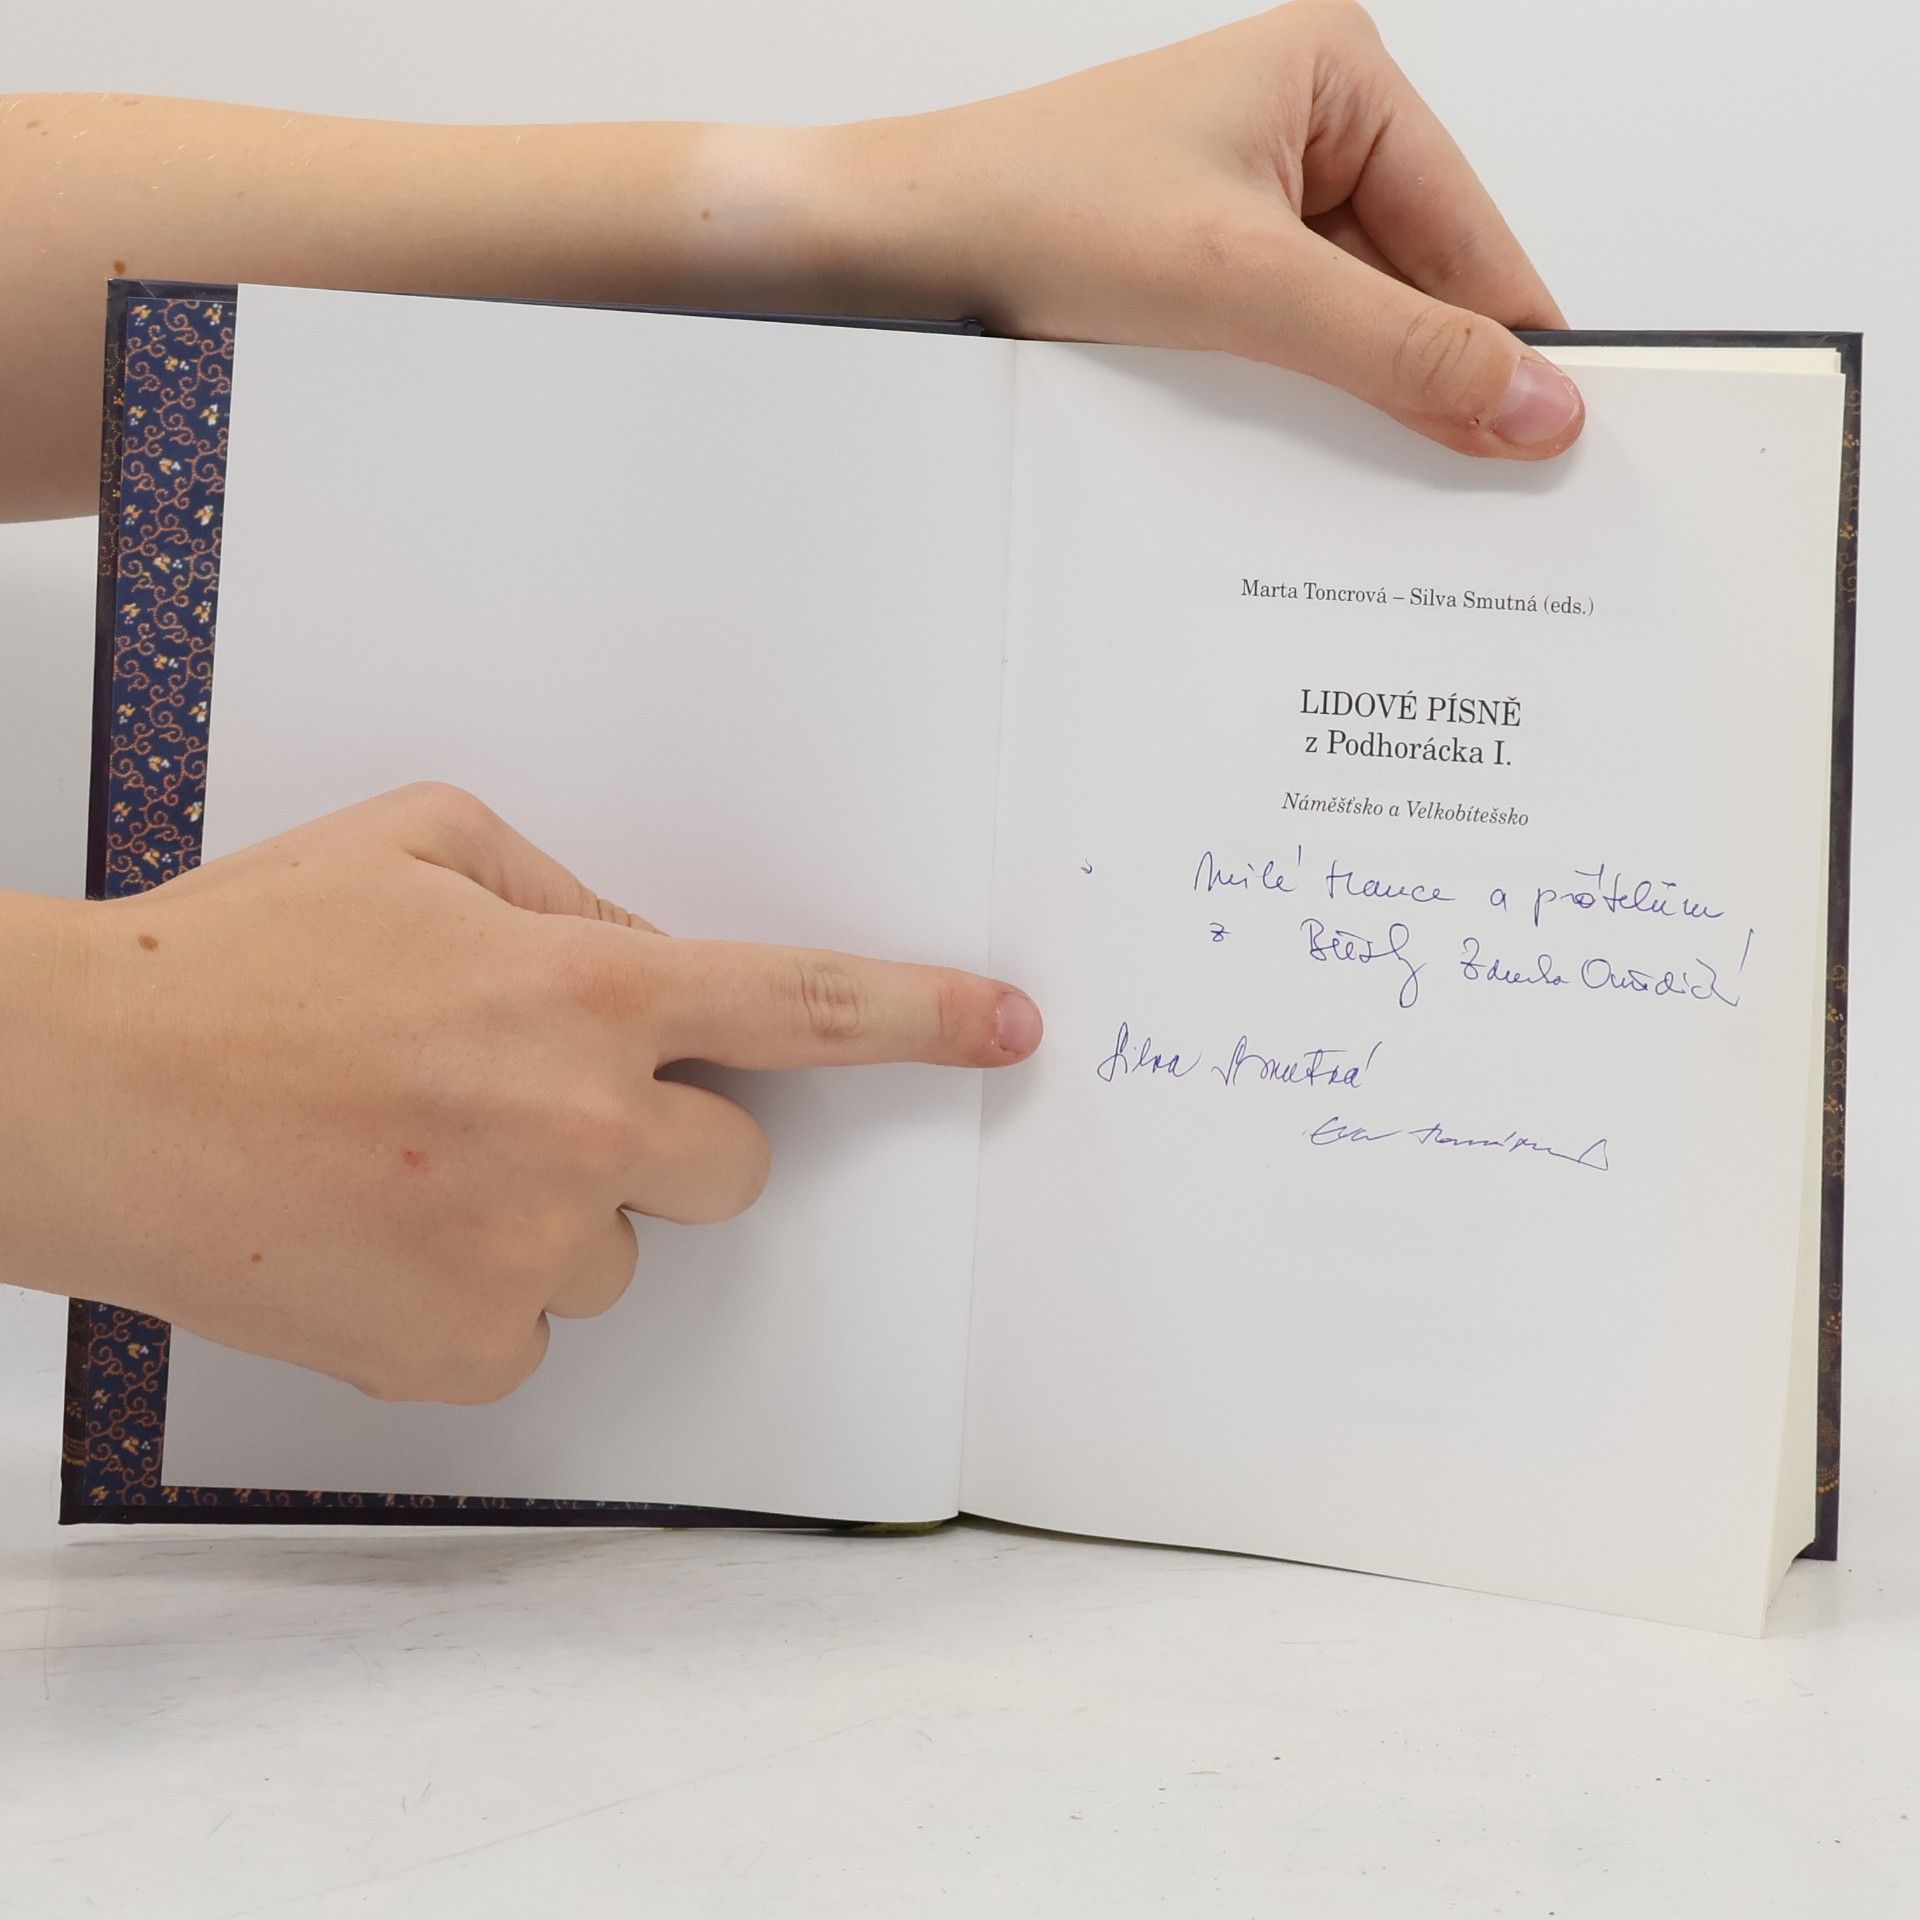 Marta Toncrová – Silva Smutná (eds.)
LIDOVÉ PÍSNĚ
z Podhorácka I.
Náměšťsko a Velkobítešsko
Milé Hance a přátelům
z
Silva Smutná
Eva